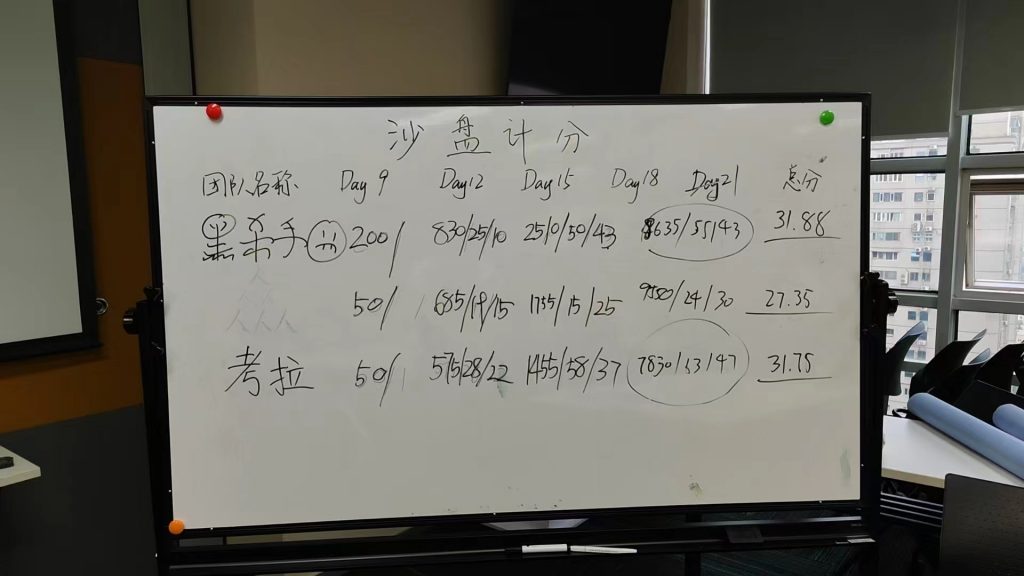 沙盘计分
团队名称 Day 9 Day12 Day15 Day18 Day21 总分
黑杀手 200/ 830/25/10 2510/50/43 8635/55/43 31.88
50/ 685/19/15 1755/15/25 9580/24/30 27.35
考拉 50/ 575/28/22 1455/58/37 7830/53/47 31.75